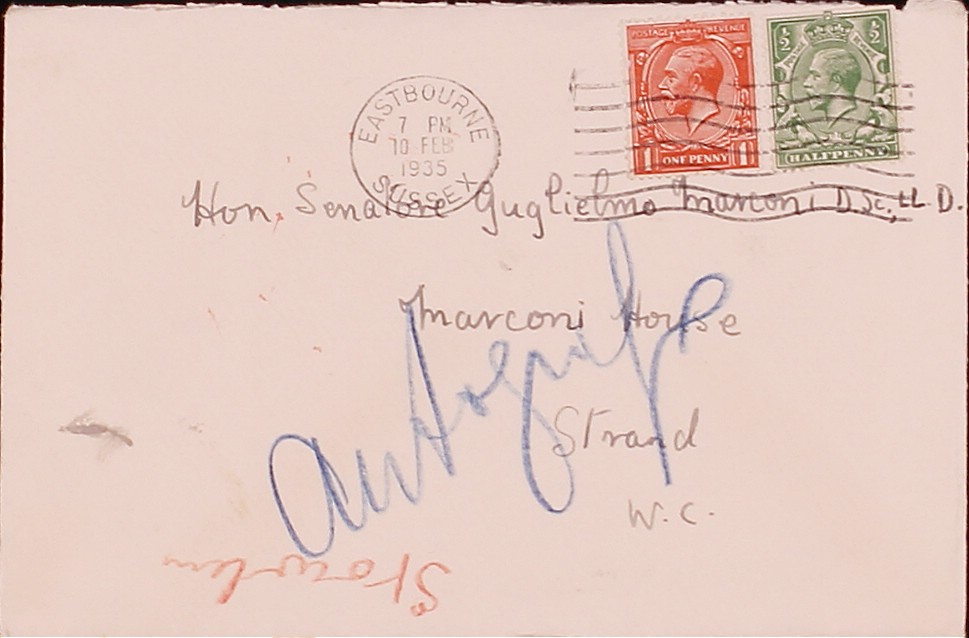 POSTAGE REVENUE
1 ONE PENNY 1
½ ½
POSTAGE REVENUE
HALFPENNY
EASTBOURNE
7 PM
10 FEB
1935
SUSSEX
Hon. Senatore Guglielmo Marconi D.Sc., LL.D.
Marconi House
Strand
W.C.